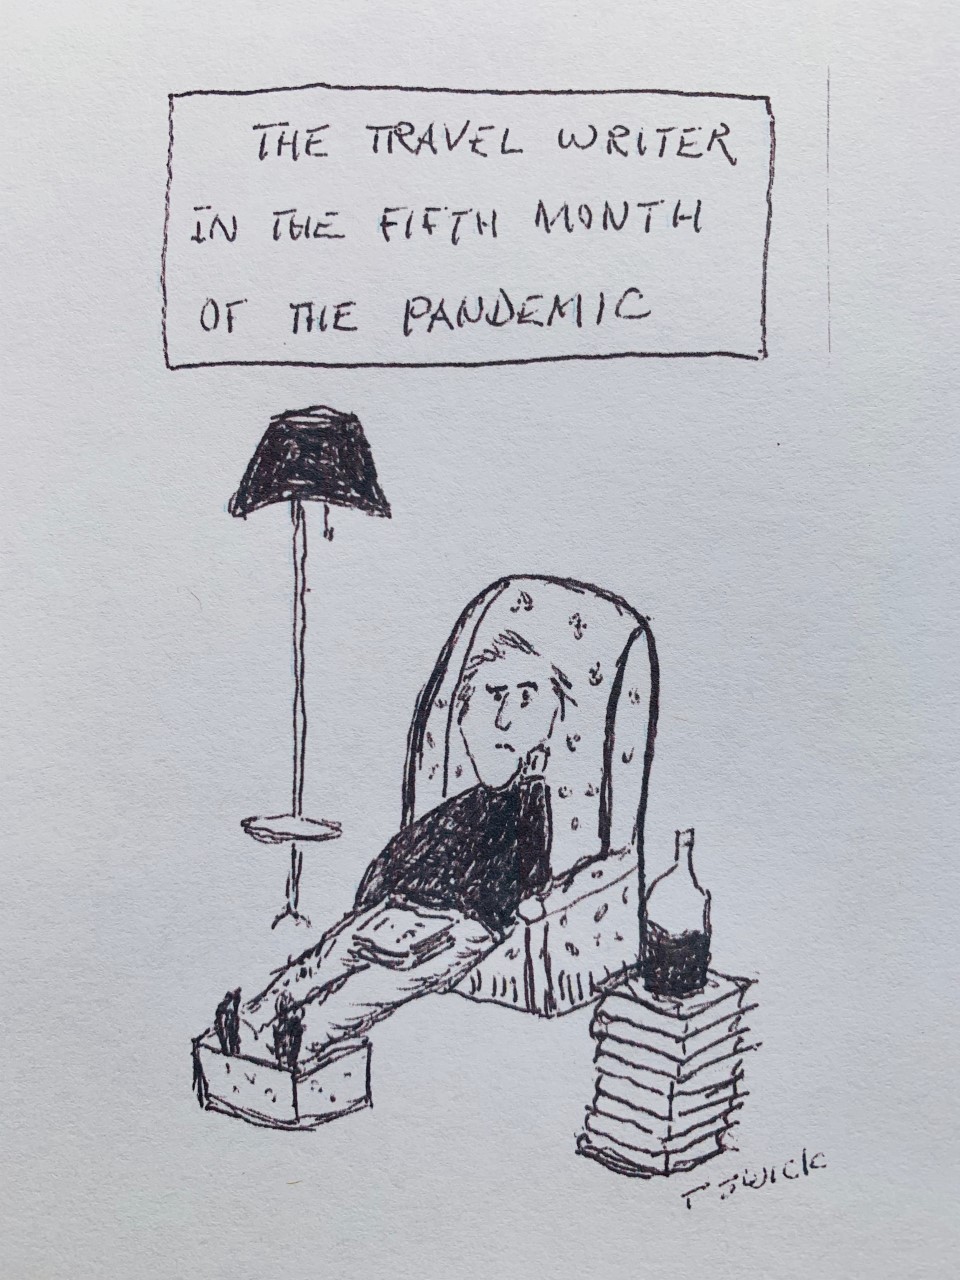 THE TRAVEL WRITER
IN THE FIFTH MONTH
OF THE PANDEMIC
T SWICK